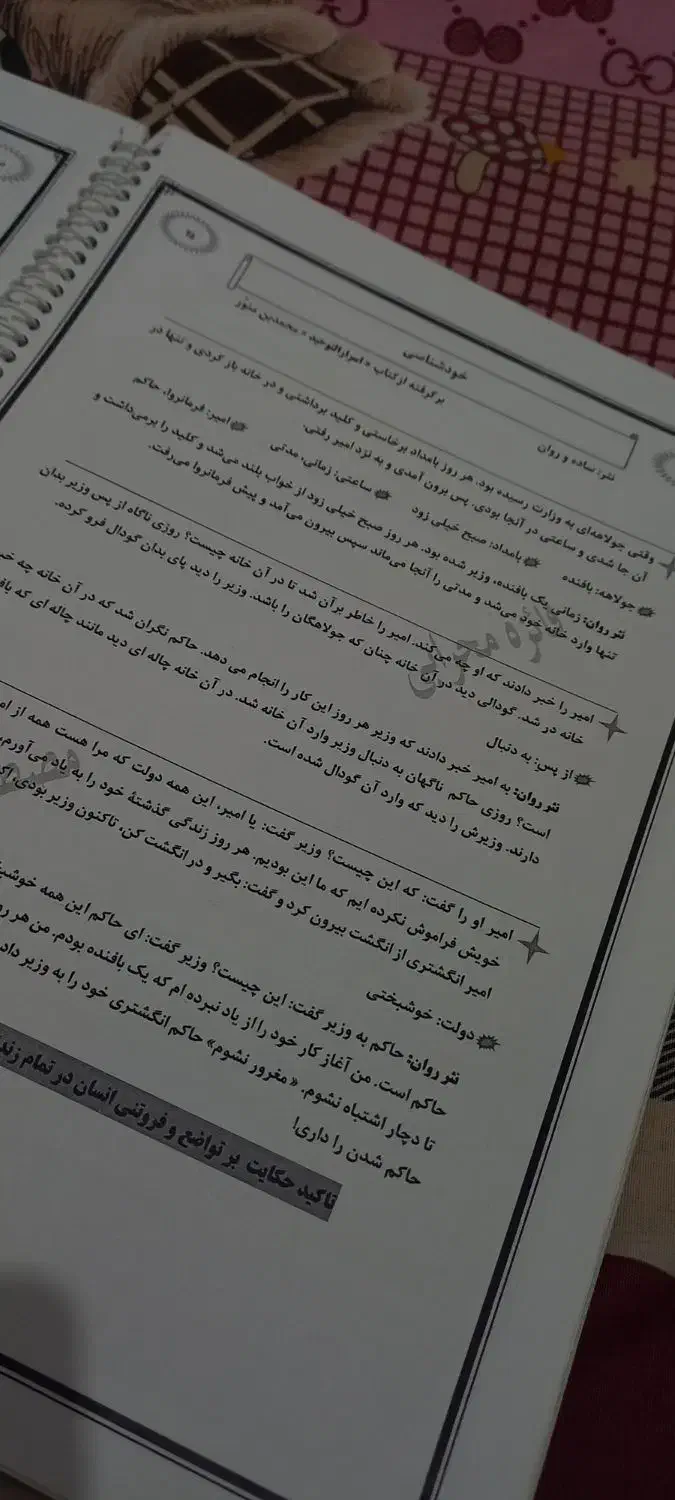 خودشناسی
نثر: ساده و روان
برگرفته از کتاب «اسرارالتوحید» محمدبن منوّر
وقتی جولاهه‌ای به وزارت رسیده بود. هر روز بامداد برخاستی و کلید برداشتی و در خانه باز کردی و تنها در
آن جا شدی و ساعتی در آنجا بودی. پس برون آمدی و به نزد امیر رفتی.
جولاهه: بافنده بامداد: صبح خیلی زود ساعتی: زمانی، مدتی امیر: فرمانروا، حاکم
نثر روان: زمانی یک بافنده، وزیر شده بود. هر روز صبح خیلی زود از خواب بلند می‌شد و کلید را برمی‌داشت و
تنها وارد خانه خود می‌شد و مدتی را آنجا می‌ماند سپس بیرون می‌آمد و پیش فرمانروا می‌رفت.
امیر را خبر دادند که او چه می‌کند. امیر را خاطر بر آن شد تا در آن خانه چیست؟ روزی ناگاه از پس وزیر بدان
خانه در شد. گودالی دید در آن خانه چنان که جولاهگان را باشد. وزیر را دید پای بدان گودال فرو کرده.
از پس: به دنبال
نثر روان: به امیر خبر دادند که وزیر هر روز این کار را انجام می دهد. حاکم نگران شد که در آن خانه چه
است؟ روزی حاکم ناگهان به دنبال وزیر وارد آن خانه شد. در آن خانه چاله ای دید مانند چاله ای که
دارند. وزیرش را دید که وارد آن گودال شده است.
امیر او را گفت: که این چیست؟ وزیر گفت: یا امیر، این همه دولت که مرا هست همه از
خویش فراموش نکرده ایم که ما این بودیم. هر روز زندگی گذشتهٔ خود را به یاد می‌آورم،
امیر انگشتری از انگشت بیرون کرد و گفت: بگیر و در انگشت کن، تاکنون وزیر بودی،
دولت: خوشبختی
نثر روان: حاکم به وزیر گفت: این چیست؟ وزیر گفت: ای حاکم این همه
حاکم است. من آغاز کار خود را از یاد نبرده ام که یک بافنده بودم. من هر
تا دچار اشتباه نشوم. «مغرور نشوم» حاکم انگشتری خود را به وزیر
حاکم شدن را داری!
تاکید حکایت بر تواضع و فروتنی انسان در تمام